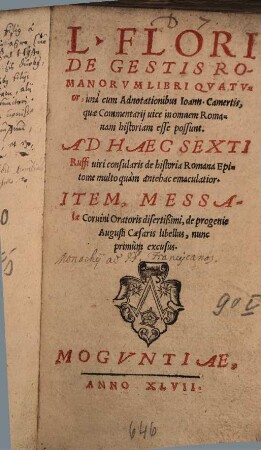 L. FLORI
DE GESTIS RO-
MANORVM LIBRI QVATV-
or, unà cum Adnotationibus Ioann. Camertis,
quæ Commentarij uice in omnem Roma-
nam historiam esse possunt.
AD HAEC SEXTI
Ruffi uiri consularis de historia Romana Epi-
tome multo quàm antehac emaculatior.
ITEM, MESSA-
læ Coruini Oratoris disertissimi, de progenie
Augusti Cæsaris libellus, nunc
primùm excusus.
Monachij ad PP. Franciscanos
90
MOGVNTIAE,
ANNO XLVII.
646